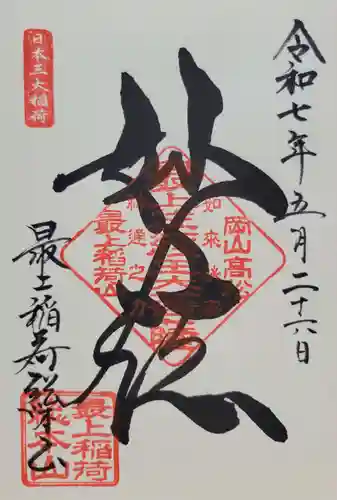 令和七年五月二十六日
妙法
最上稲荷総本山
日本三大稲荷
岡山高松
最上稲荷山
最上稲荷
總本山